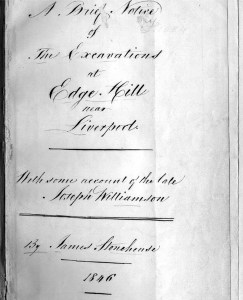 A Brief Notice
of
The Excavations
at
Edge Hill
near
Liverpool
With some account of the late
Joseph Williamson
By James Stonehouse
1846